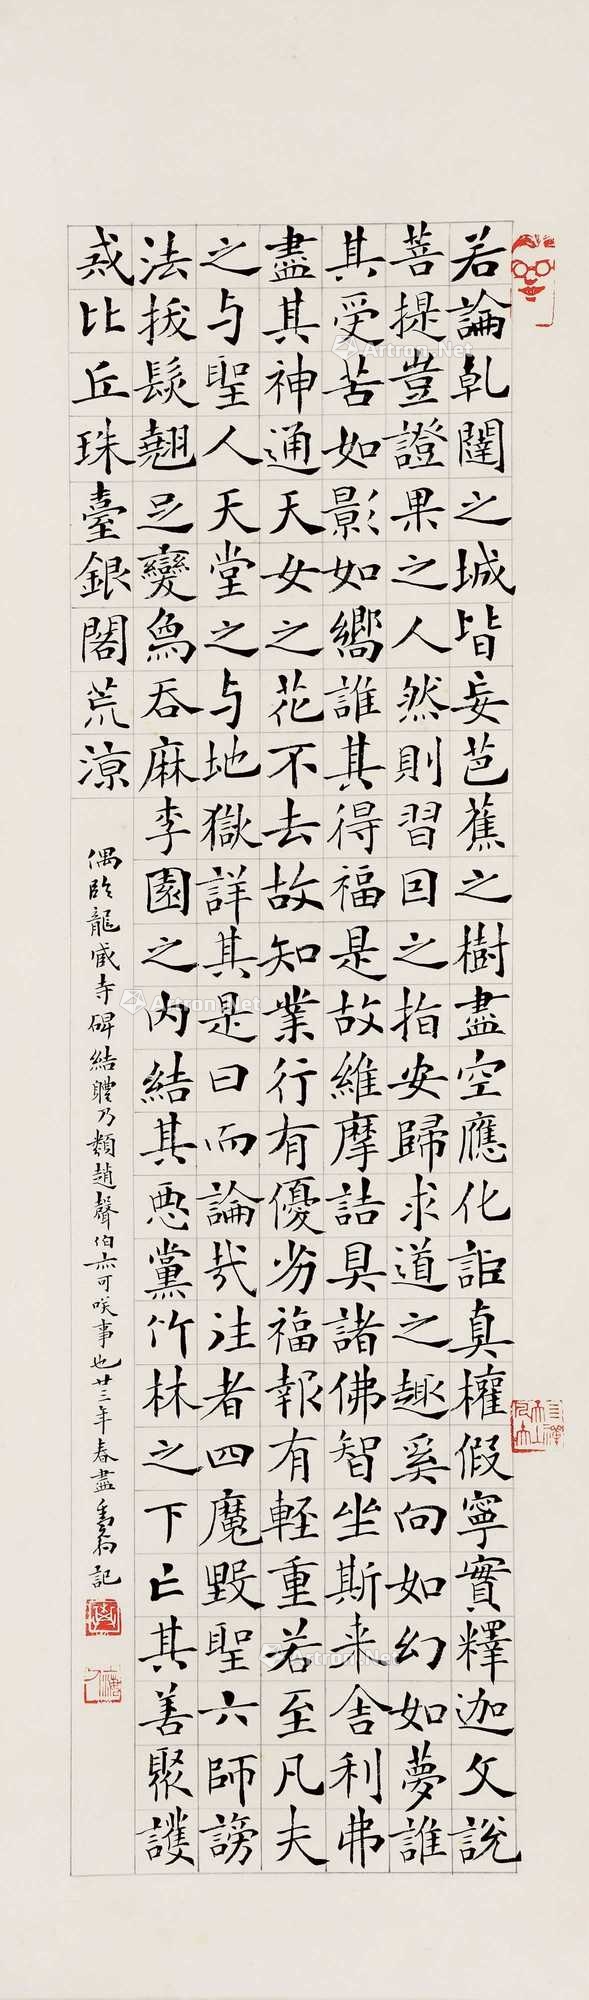 若論乹闥之城皆妄芭蕉之樹盡空應化詎真權假寧實釋迦文說
菩提豈證果之人然則習因之指安歸求道之趣奚向如幻如夢誰
其受苦如影如嚮誰其得福是故維摩詰具諸佛智坐斯来舍利弗
盡其神通天女之花不去故知業行有優劣福報有輕重若至凡夫
之与聖人天堂之与地獄詳其是曰而論㢤注者四魔毀聖六師謗
法拔髮翹足變鳥吞麻李園之內結其惡黨竹林之下亡其善聚護
戒比丘珠臺銀閣荒涼
偶臨龍藏寺碑結軆乃類趙聲伯亦可咲事也廿三年春盡記
Artron.Net
Artron.Net
Artron.Net